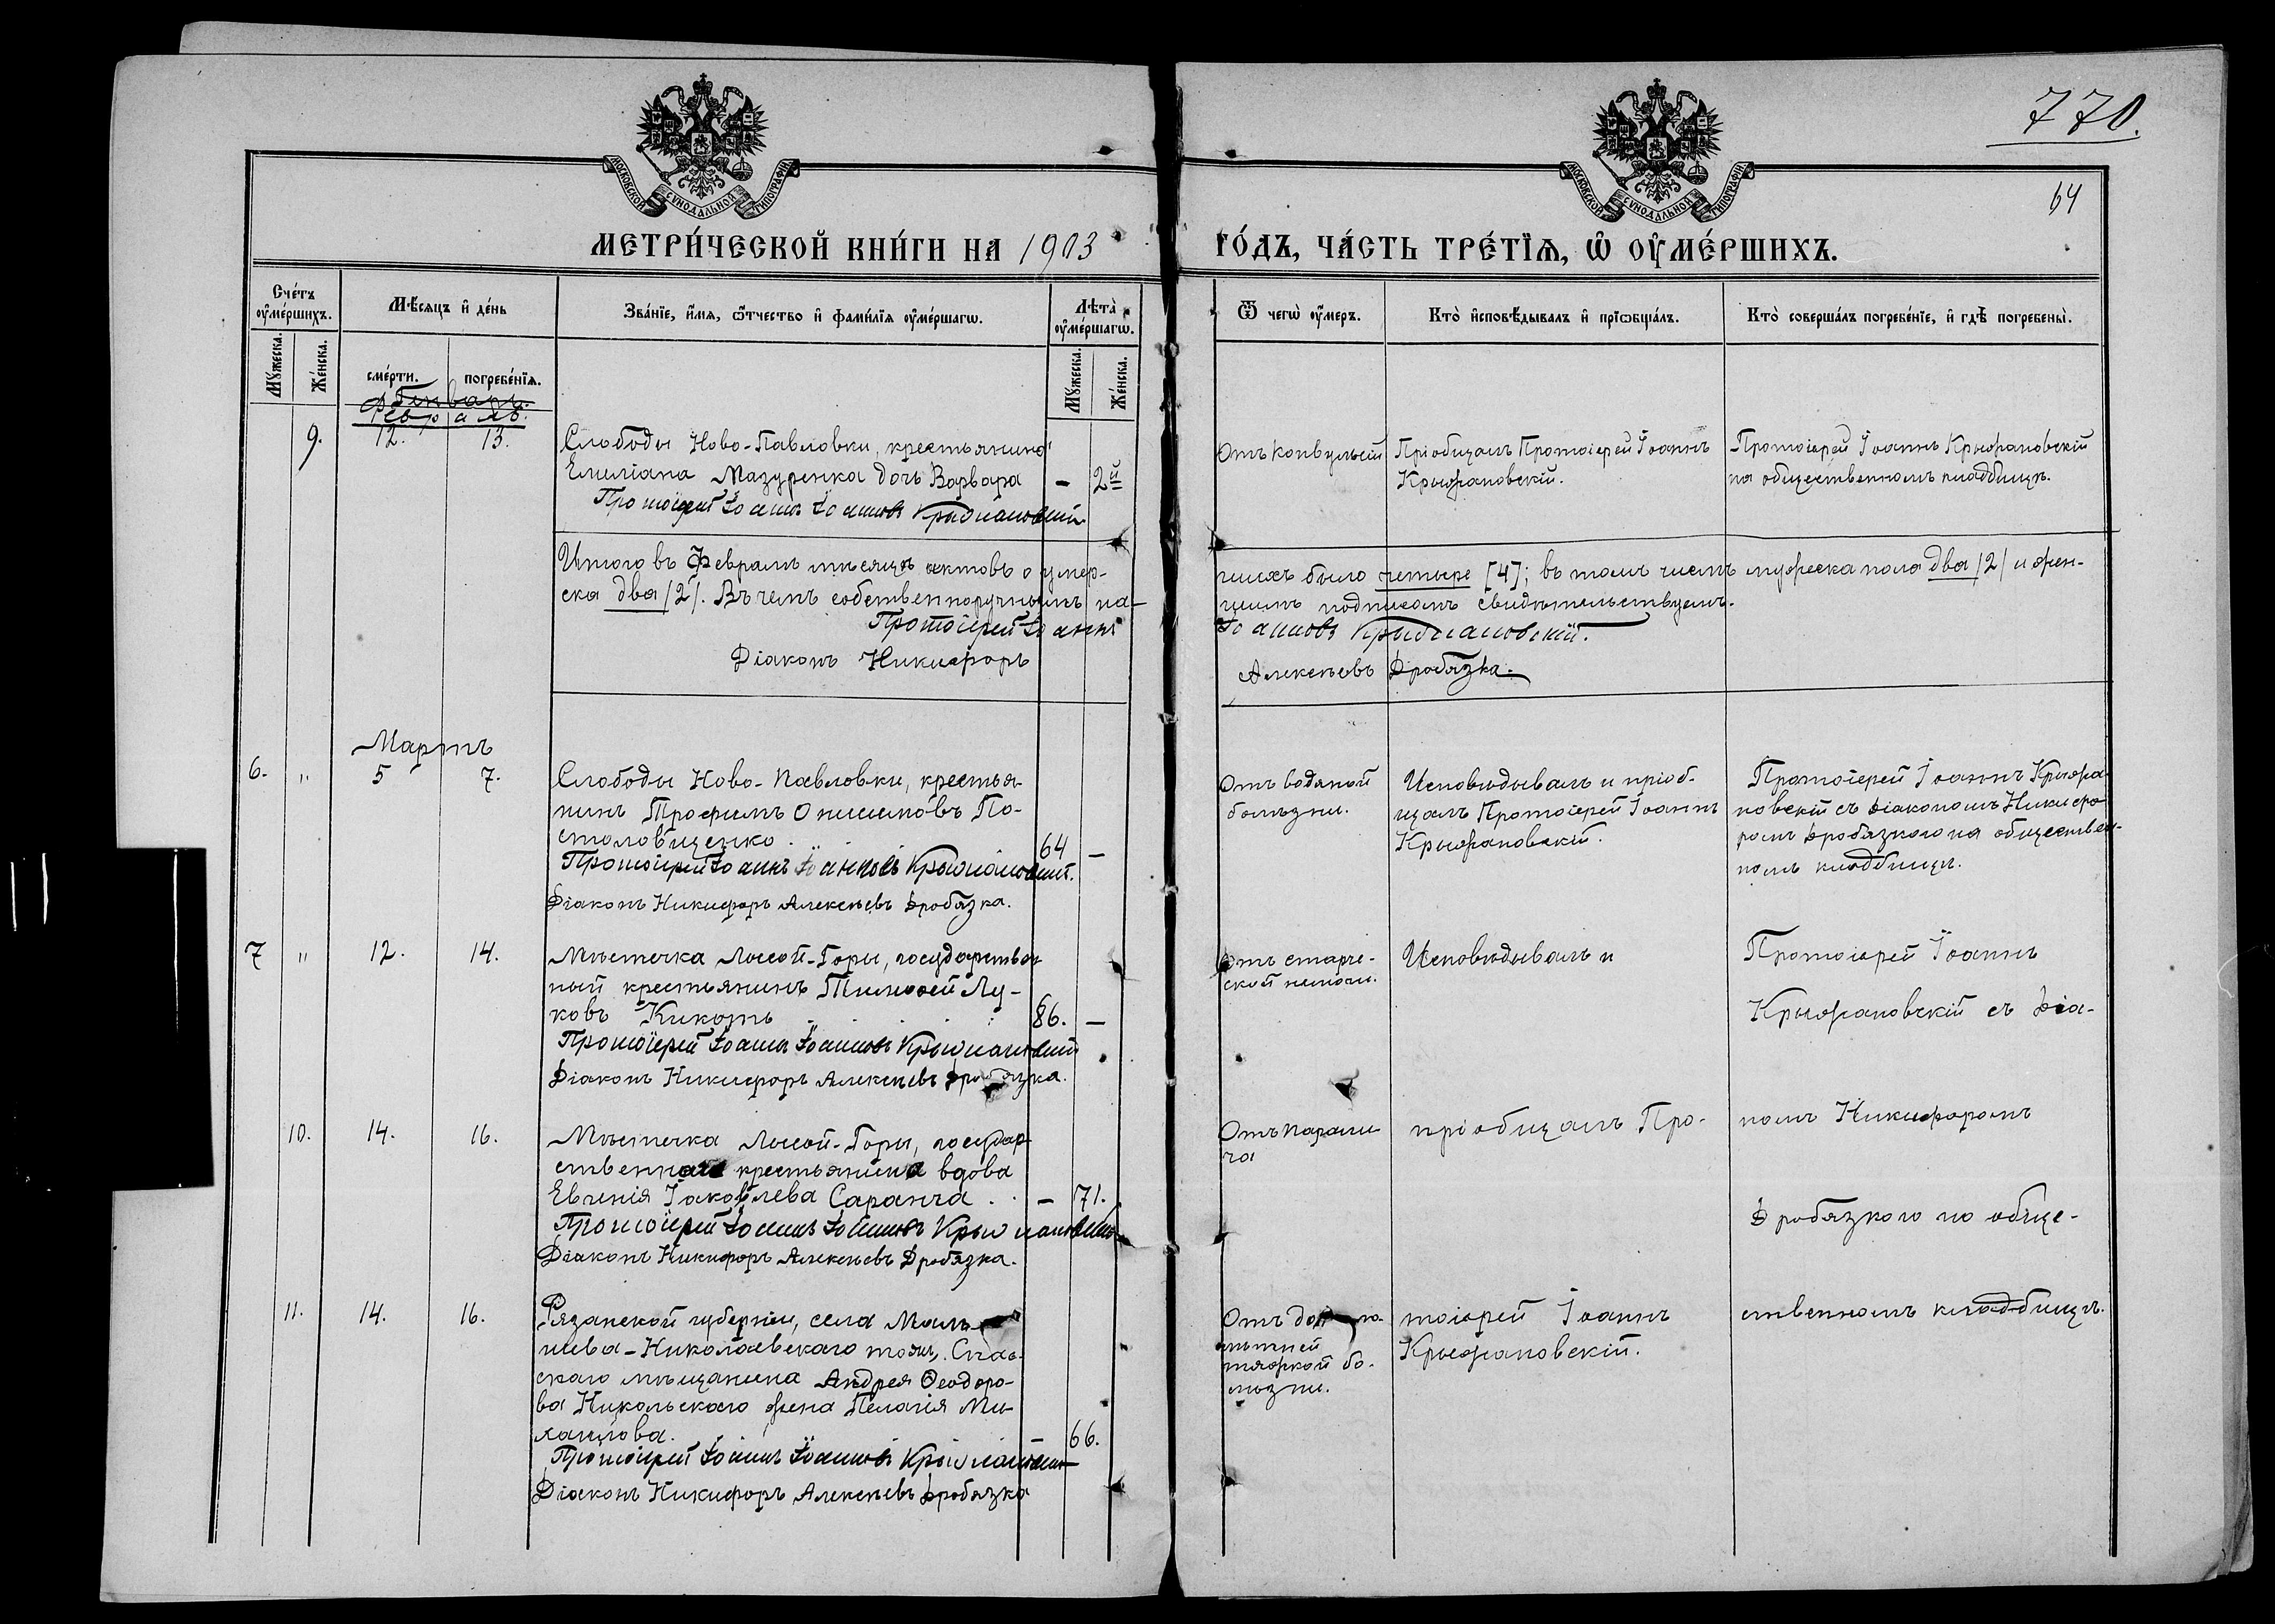 770.
64
МОСКОВСКОЙ СѴНОДАЛЬНОЙ ТИПОГРАФІИ
МОСКОВСКОЙ СѴНОДАЛЬНОЙ ТИПОГРАФІИ
МЕТРИ́ЧЕСКОЙ КНИ́ГИ НА 1903
ГО́ДЪ, ЧА́СТЬ ТРЕ́ТІѦ, Ѡ ОУ҆МЕ́РШИХЪ.
Сче́тъ оу҆ме́ршихъ.
Мꙋ́жеска.
Же́нска.
Мѣ́сѧцъ и҆ де́нь
сме́рти.
погребе́нїѧ.
Зва́нїе, и҆́мѧ, ѻ҆́тчество и҆ фами́лїѧ оу҆ме́ршагѡ.
Лѣта̀ оу҆ме́ршагѡ.
Мꙋ́жеска.
Же́нска.
Ѿ чегѡ̀ оу҆́меръ.
Кто̀ и҆сповѣ́дывалъ и҆ прїѡбща́лъ.
Кто̀ соверша́лъ погребе́нїе, и҆ гдѣ̀ погребены̀.
Январь.
Февраль.
9. 12. 13.
Слободы Ново-Павловки, крестьянина
Емиліана Мазуренка дочь Варвара – 2
Протоіерей Іоаннъ Іоанновъ Крыжановскій
Отъ конвульсій
Пріобщалъ Протоіерей Іоаннъ
Крыжановскій.
Протоіерей Іоаннъ Крыжановскій
на общественномъ кладбищѣ.
Итого въ Февралѣ мѣсяцѣ актовъ о умер-
шихъ было четыре [4]; въ томъ числѣ мужеска пола два /2/ и жен-
ска два /2/. Въ чемъ собственноручнымъ на-
шимъ подписомъ свидѣтельствуемъ.
Протоіерей Іоаннъ
Іоанновъ Крыжановскій.
Діаконъ Никифоръ
Алексѣевъ Дробязка.
Мартъ
6. " 5 7.
Слободы Ново-Павловки, крестья-
нинъ Трофимъ Онисимовъ По-
столовщенко. 64 –
Протоіерей Іоаннъ Іоанновъ Крыжановскій.
Діаконъ Никифоръ Алексѣевъ Дробязка.
Отъ водяной
болѣзни.
Исповѣдывалъ и пріоб-
щалъ Протоіерей Іоаннъ
Крыжановскій.
Протоіерей Іоаннъ Крыжа-
новскій съ діакономъ Никифо-
ромъ Дробязкого на обществен-
номъ кладбищѣ.
7 " 12. 14.
Мѣстечка Лысой-Горы, государствен-
ный крестьянинъ Тимофей Лу-
ковъ Кикоть 86. –
Протоіерей Іоаннъ Іоанновъ Крыжановскій
Діаконъ Никифоръ Алексѣевъ Дробязка.
Отъ старче-
ской немощи.
Исповѣдывалъ и
Протоіерей Іоаннъ
Крыжановскій съ діа-
10. 14. 16.
Мѣстечка Лысой-Горы, государ-
ственнаго крестьянина вдова
Евгенія Іаковлева Саранча – 71.
Протоіерей Іоаннъ Іоанновъ Крыжановскій
Діаконъ Никифоръ Алексѣевъ Дробязка.
Отъ парали-
ча
пріобщалъ Про-
номъ Никифоромъ
Дробязкого на обще-
11. 14. 16.
Рязанской губерніи, села
Николаевскаго тожъ, Спас-
скаго мѣщанина Андрея Ѳеодоро-
ва Никольскаго жена Пелагія Ми-
хаилова. 66.
Протоіерей Іоаннъ Іоанновъ Крыжановскій
Діаконъ Никифоръ Алексѣевъ Дробязка
Отъ долго-
лѣтней
тяжкой бо-
лѣзни.
тоіерей Іоаннъ
Крыжановскій.
ственномъ кладбищѣ.